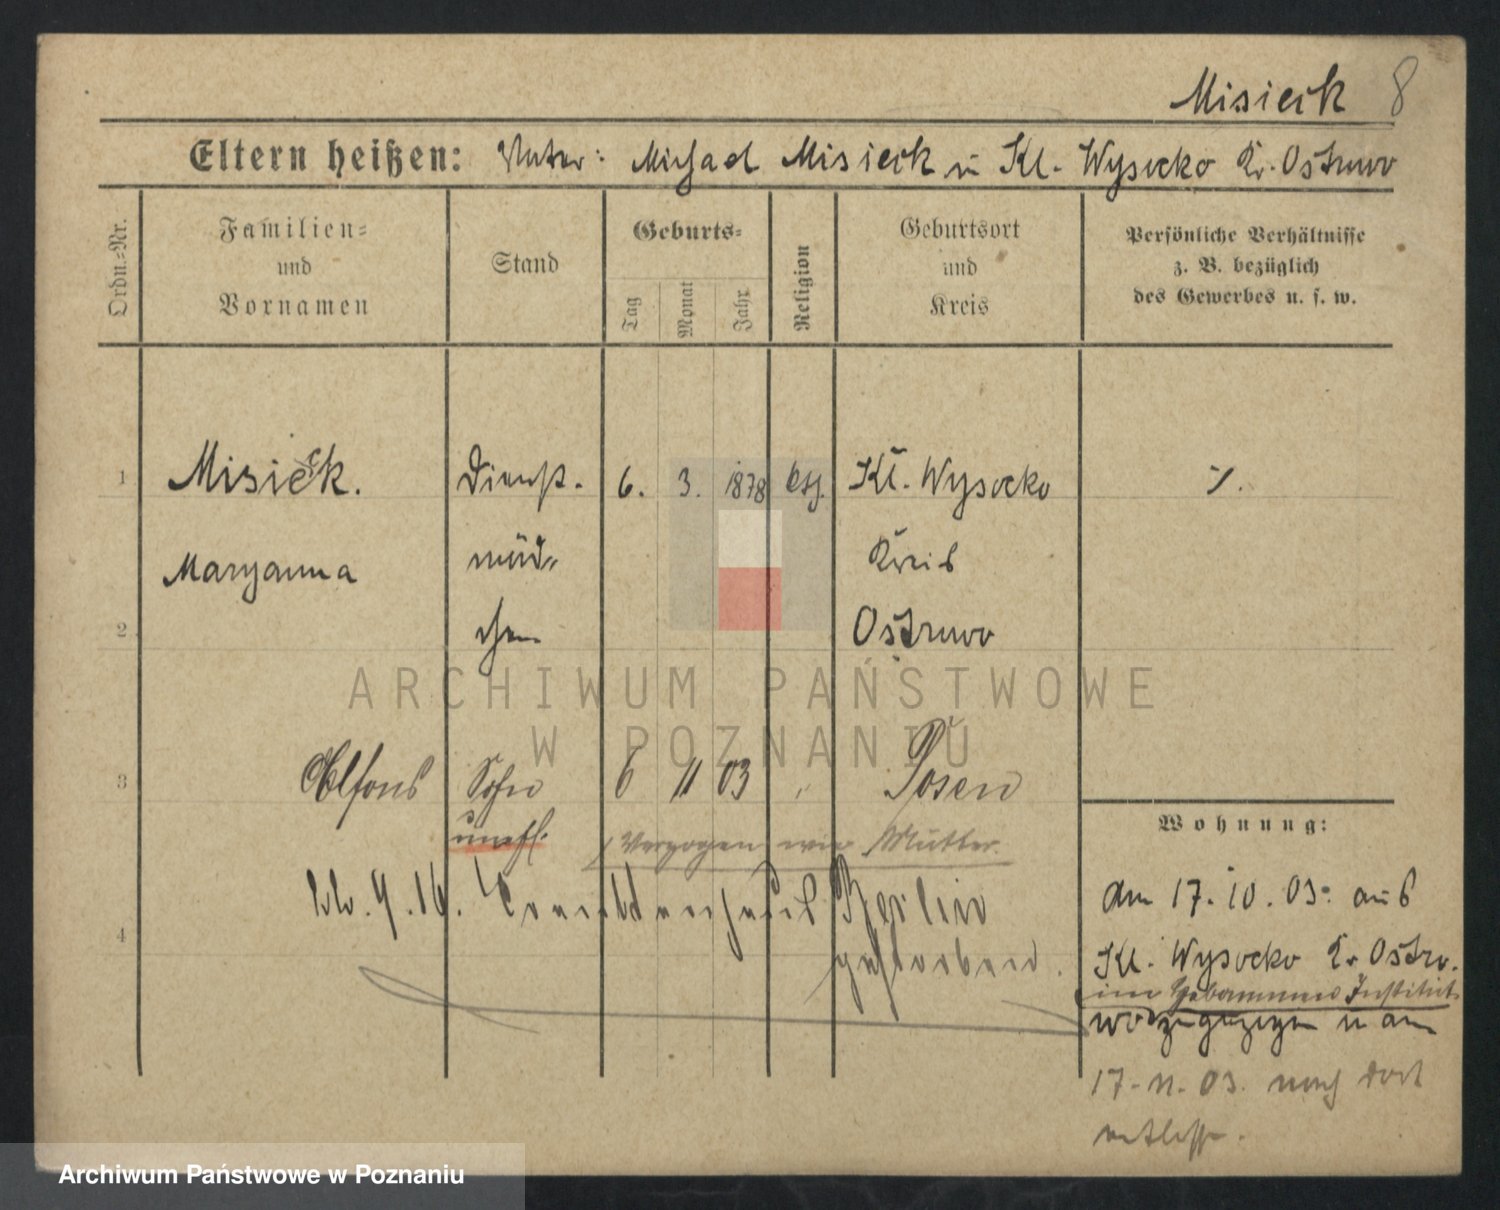 Misieck 8
Eltern heißen: Vater: Michael Misieck in Kl. Wysocko Kr. Ostrowo
Ordn.-Nr.
Familien-
und
Vornamen
Stand
Geburts-
Tag
Monat
Jahr
Religion
Geburtsort
und
Kreis
Persönliche Verhältnisse
z. B. bezüglich
des Gewerbes u. s. w.
1 Misieck. Dienst- 6. 3. 1878 Kl. Wysocko
Maryanna mäd- Kreis
2 chen Ostrowo
ARCHIWUM PAŃSTWOWE
W POZNANIU
3 Alfons Sohn 6 11 03 " Posen
unehl. Verzogen wie Mutter.
Wohnung:
4 Berlin
gestorben.
Am 17.10.03. aus
Kl. Wysocko Kr. Ostrw.
im Hebammen Institut
zugezogen u am
17.11.03. nach dort
entlassen.
Archiwum Państwowe w Poznaniu